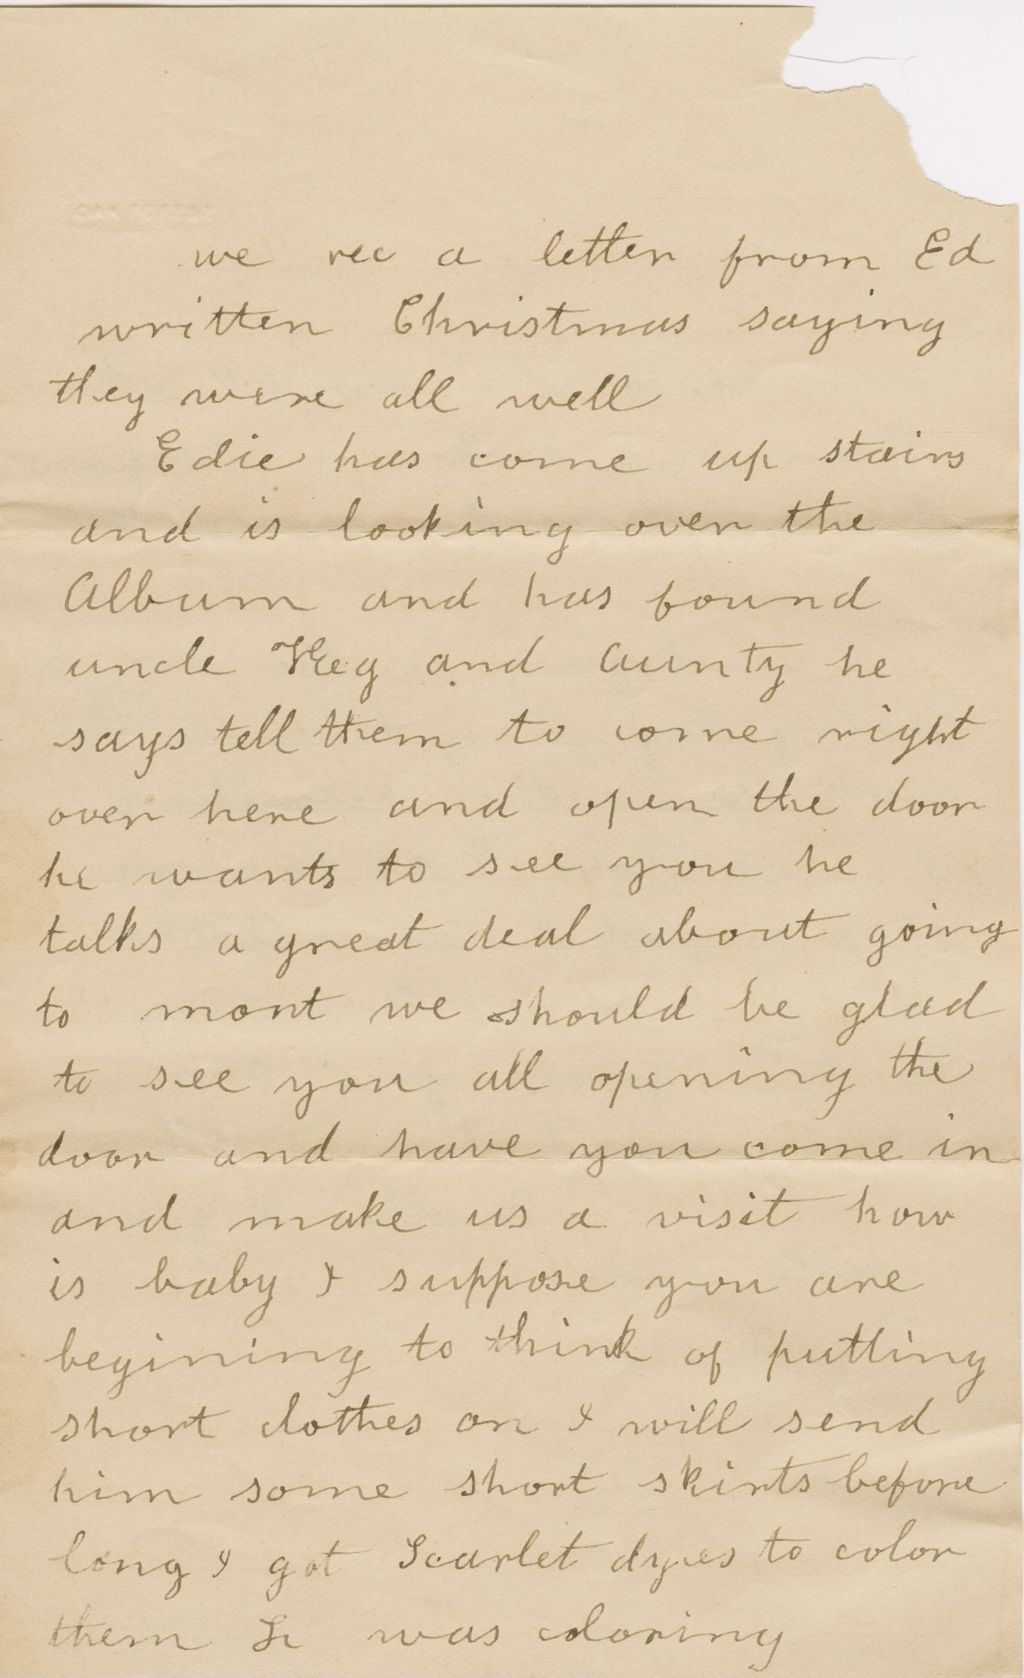 we rec a letter from Ed
written Christmas saying
they were all well
Edie has come up stairs
and is looking over the
Album and has found
uncle Heg and Aunty he
says tell them to come right
over here and open the door
he wants to see you he
talks a great deal about going
to mont we should be glad
to see you all opening the
door and have you come in
and make us a visit how
is baby I suppose you are
begining to think of putting
short clothes on I will send
him some short skirts before
long I got Scarlet dyes to color
them was coloring